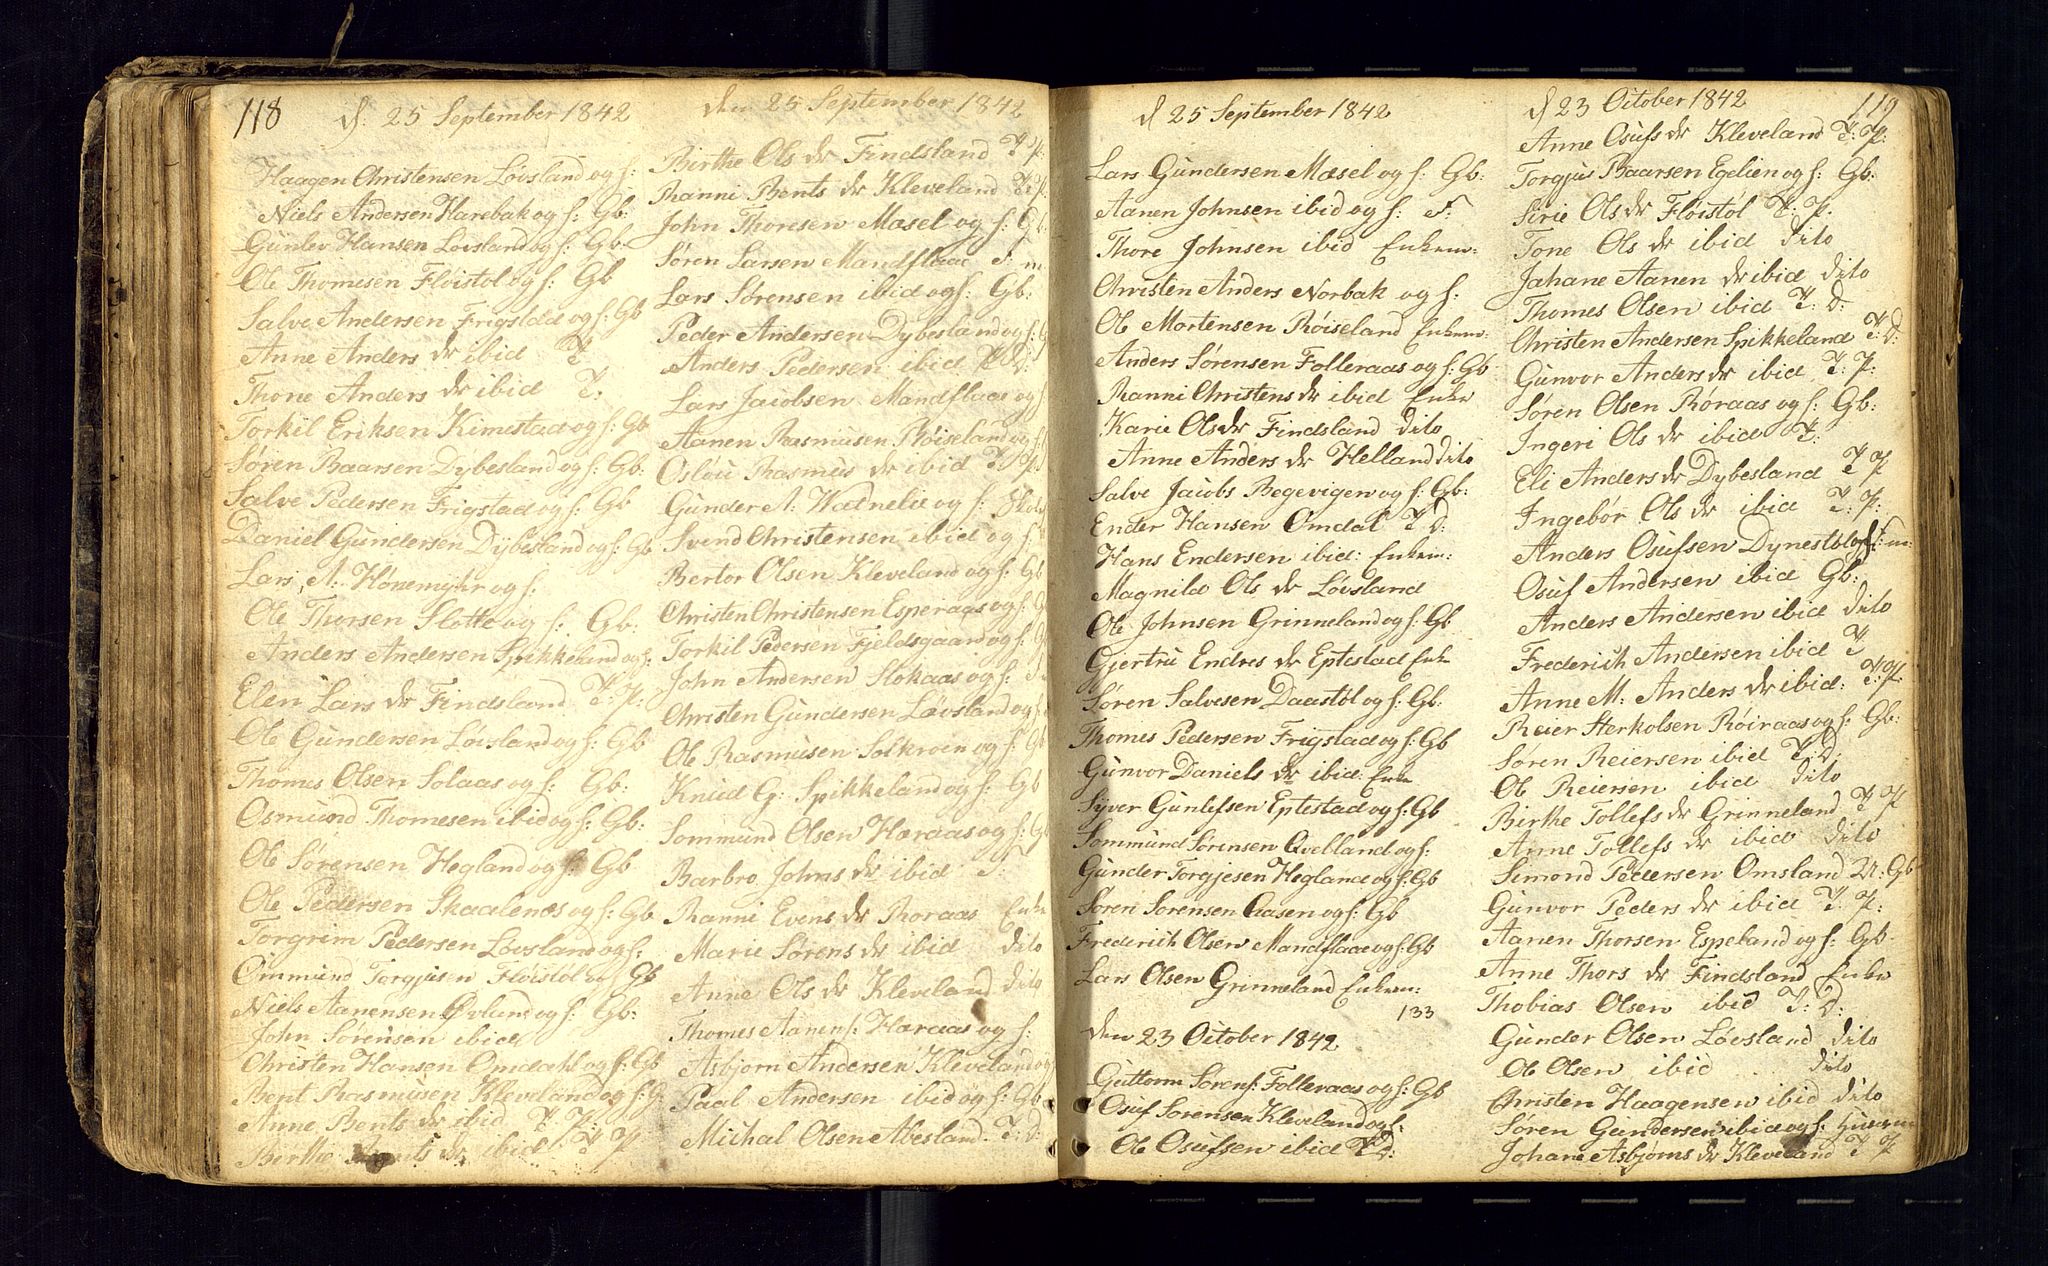 118
d. 25 September 1842
Haagen Christensen Løvsland og f:
Niels Andersen Harebak og f: Gb:
Gunlev Hansen Løvsland og f: Gb:
Ole Thomesen Fløistøl og f: Gb
Salve Andersen Frigstad og f: Gb
Anne Anders dr ibid T:
Thone Anders dr ibid T:
Torkil Eriksen Kimestad og f: Gb
Søren Baarsen Dybesland og f: Gb:
Salve Pedersen Frigstad og f: Gb
Daniel Gundersen Dybesland og f: Gb
Lars A. Hønemyhr og f:
Ole Thorsen Slotte og f: Gb:
Anders Andersen Spikkeland og f:
Elen Lars dr Findsland T: P:
Ole Gundersen Løvsland og f: Gb
Thomes Olsen Solaas og f: Gb:
Osmund Thomesen ibid og f: Gb:
Ole Sørensen Hegland og f: Gb
Ole Pedersen Skaalenæs og f: Gb
Torgrim Pedersen Løvsland og f:
Ommund Torgjusen Fløistøl og Gb
Niels Aanensen Øvland og f: Gb:
John Sørensen ibid
Christen Hansen Omdahl og f: Gb
Bent Rasmusen Kleveland og f: G
Anne Bents dr ibid T: P:
Birthe Bents dr ibid T: P:
den 25 September 1842
Birthe Ols dr Findsland T: P:
Ranni Bents dr Kleveland T: P:
John Thoresen Mæsel og f: Gb
Søren Larsen Mandflaae F: m
Lars Sørensen ibid og f: Gb:
Peder Andersen Dybesland og f: G
Anders Pedersen ibid T: D:
Lars Jacobsen Mandflaae og f
Aanen Rasmusen Røiseland og f
Oslou Rasmus dr ibid T: P
Gunder A: Watnelie og f:
Svend Christensen ibid og f:
Bertor Olsen Kleveland og f: Gb
Christen Christensen Esperaas og f: G
Torkil Pedersen Fjeldsgaard og f: G
John Andersen Stokaas og f:
Christen Gundersen Løvsland og f
Ole Rasmusen Solkroin og f: Gb
Knud G: Spikkeland og f: Gb
Sommund Olsen Haraas og f: Gb
Barbro Johns dr ibid F:
Ranni Evens dr Roraas Enke
Marie Sørens dr ibid dito
Anne Ols dr Kleveland dito
Thomes Aanens: Haraas og f:
Asbjørn Andersen Kleveland og
Paal Andersen ibid og f: Gb
Michal Olsen Abesland T: D:
d 25 September 1842
Lars Gundersen Mæsel og f: Gb:
Aanen Johnsen ibid og f: F:
Thore Johnsen ibid Enkem:
Christen Anders Norbak og f:
Ole Mortensen Røiseland Enkem:
Anders Sørensen Folleraas og f: Gb
Ranni Christens dr ibid Enke
Karie Ols dr Findsland dito
Anne Anders dr Helland dito
Salve Jacobs Begevigen og f: Gb:
Ender Hansen Omdal T: D:
Hans Endersen ibid: Enkem:
Magnild Ols dr Løvsland
Ole Johnsen Grinneland og f: Gb
Gjertru Endres dr Eptestad Enke
Søren Salvesen Daastøl og f: Gb:
Thomes Pedersen Frigstad og f: Gb
Gunvor Daniels dr ibid: Enke
Syver Gunlefsen Eptestad og f: Gb
Sommund Sørensen Qvelland og f:
Gunder Torgjesen Hegland og f: Gb
Søren Sørensen Aasen og f: Gb
Frederich Olsen Mandflaae og f: Gb
Lars Olsen Grinneland Enkem:
133
den 23 October 1842
Guttorm Sørens: Folleraas og f: Gb
Osuf Sørensen Kleveland og f:
Ole Osufsen ibid T: D:
119
d 23 October 1842
Anne Osufs dr Kleveland T: P:
Torgjus Baarsen Egelien og f: Gb:
Sirie Ols dr Fløistøl T: P:
Tone Ols dr ibid dito
Jahane Aanen dr ibid dito
Thomes Olsen ibid T: D:
Christen Andersen Spikkeland T: D:
Gunvor Anders dr ibid T: P:
Søren Olsen Røraas og f: Gb:
Ingeri Ols dr ibid T:
Eli Anders dr Dybesland T: P
Ingebør Ols dr ibid T: P:
Anders Osufsen Dynestøl og f: F: m:
Osuf Andersen ibid Gb:
Anders Andersen ibid dito
Frederich Andersen ibid T
Anne M: Anders dr ibid: T: P:
Reier Herkolsen Røiraas og f: Gb:
Søren Reiersen ibid T: D:
Ole Reiersen ibid dito
Birthe Tollefs dr Grinneland T: P
Anne Tollefs dr ibid dito
Simond Pedersen Omsland U: Gb
Gunvor Peders dr ibid T: P:
Aanen Thorsen Espeland og f: Gb
Anne Thors dr Findsland Enke
Thobias Olsen ibid T: D:
Gunder Olsen Løvsland dito
Ole Olsen ibid dito
Christen Haagensen ibid dito
Søren Gundersen ibid og f: Husm
Johane Asbjørns dr Kleveland T: P